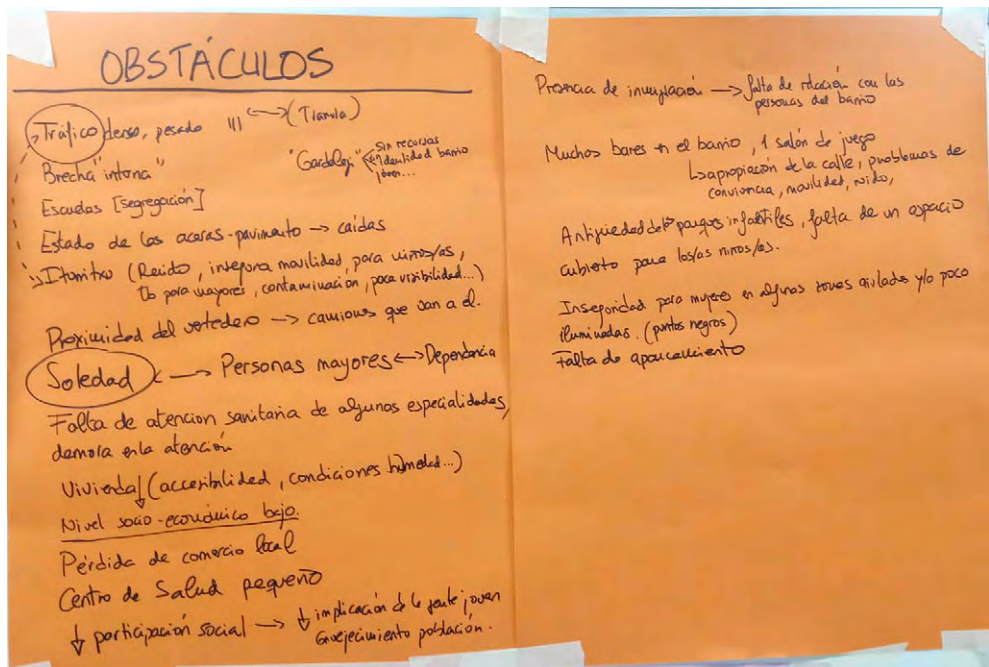 OBSTÁCULOS
Tráfico denso, pesado !!! <—> (Tranvía)
Brecha "interna"
"Gardelegi" Sin recursos
identidad barrio
Escuelas [segregación]
Estado de las aceras-pavimento —> caídas
Iturritxu (Ruido, insegura movilidad, para niños/as,
para mayores, contaminación, poca visibilidad...)
Proximidad del vertedero —> camiones que van a el.
Soledad <—> Personas mayores <—> Dependencia
Falta de atencion sanitaria de algunas especialidades,
demora en la atención
Vivienda (accesibilidad, condiciones humedad...)
↓
Nivel socio-económico bajo.
Pérdida de comercio local
Centro de Salud pequeño
↓ participación social —> ↓ implicación de la gente joven
Envejecimiento población.
Presencia de inmigración —> falta de relación con las
personas del barrio
Muchos bares en el barrio, 1 salón de juego
↳ apropiación de la calle, problemas de
convivencia, movilidad, ruido,
Antigüedad de los parques infantiles, falta de un espacio
cubierto para los/as niños/as.
Inseguridad para mujeres en algunas zonas aisladas y/o poco
iluminadas. (puntos negros)
Falta de aparcamiento